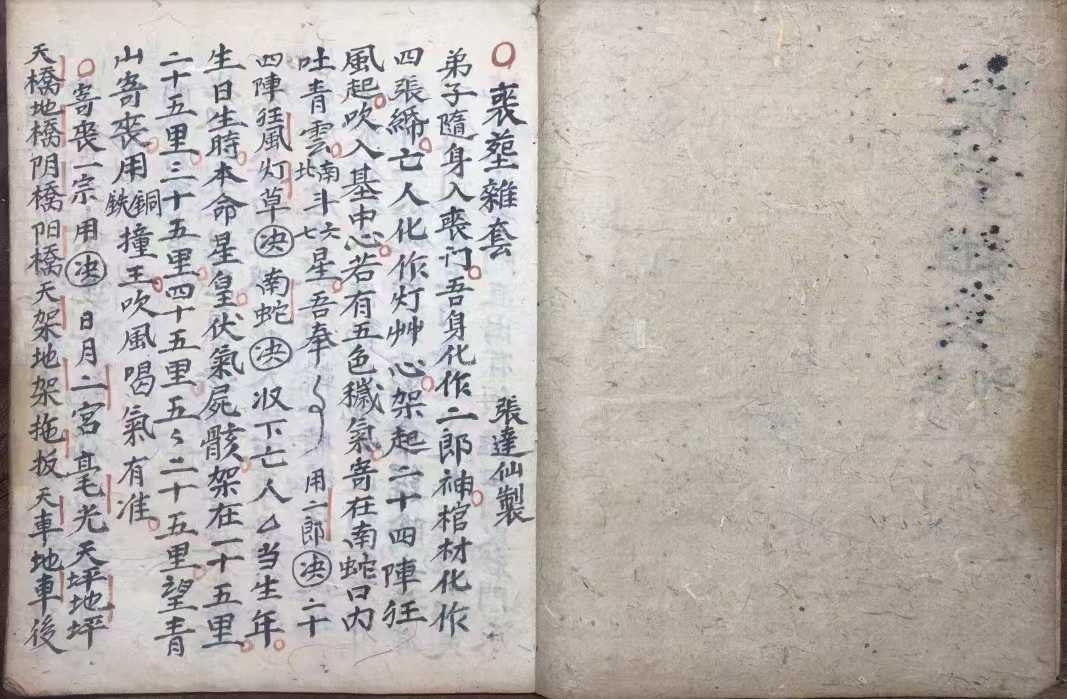 喪塟雜套 張達仙製
弟子隨身入喪门吾身化作二郎神棺材化作
四張締亡人化作灯艸心架起二十四陣狂
風起吹入基中心若有五色穢氣寄在南蛇口内
吐青雲南北斗六七星吾奉 用二郎决二十
四陣狂风灯草决南蛇决収下亡人厶当生年
生日生時本命星皇伏氣屍骸架在一十五里
二十五里三十五里四十五里五〻二十五里望青
山寄喪用銅鉄撞王吹風喝氣有准
寄喪一宗用决日月二宮毫光天坪地坪
天橋地橋阴橋阳橋天架地架拖扳天車地車後